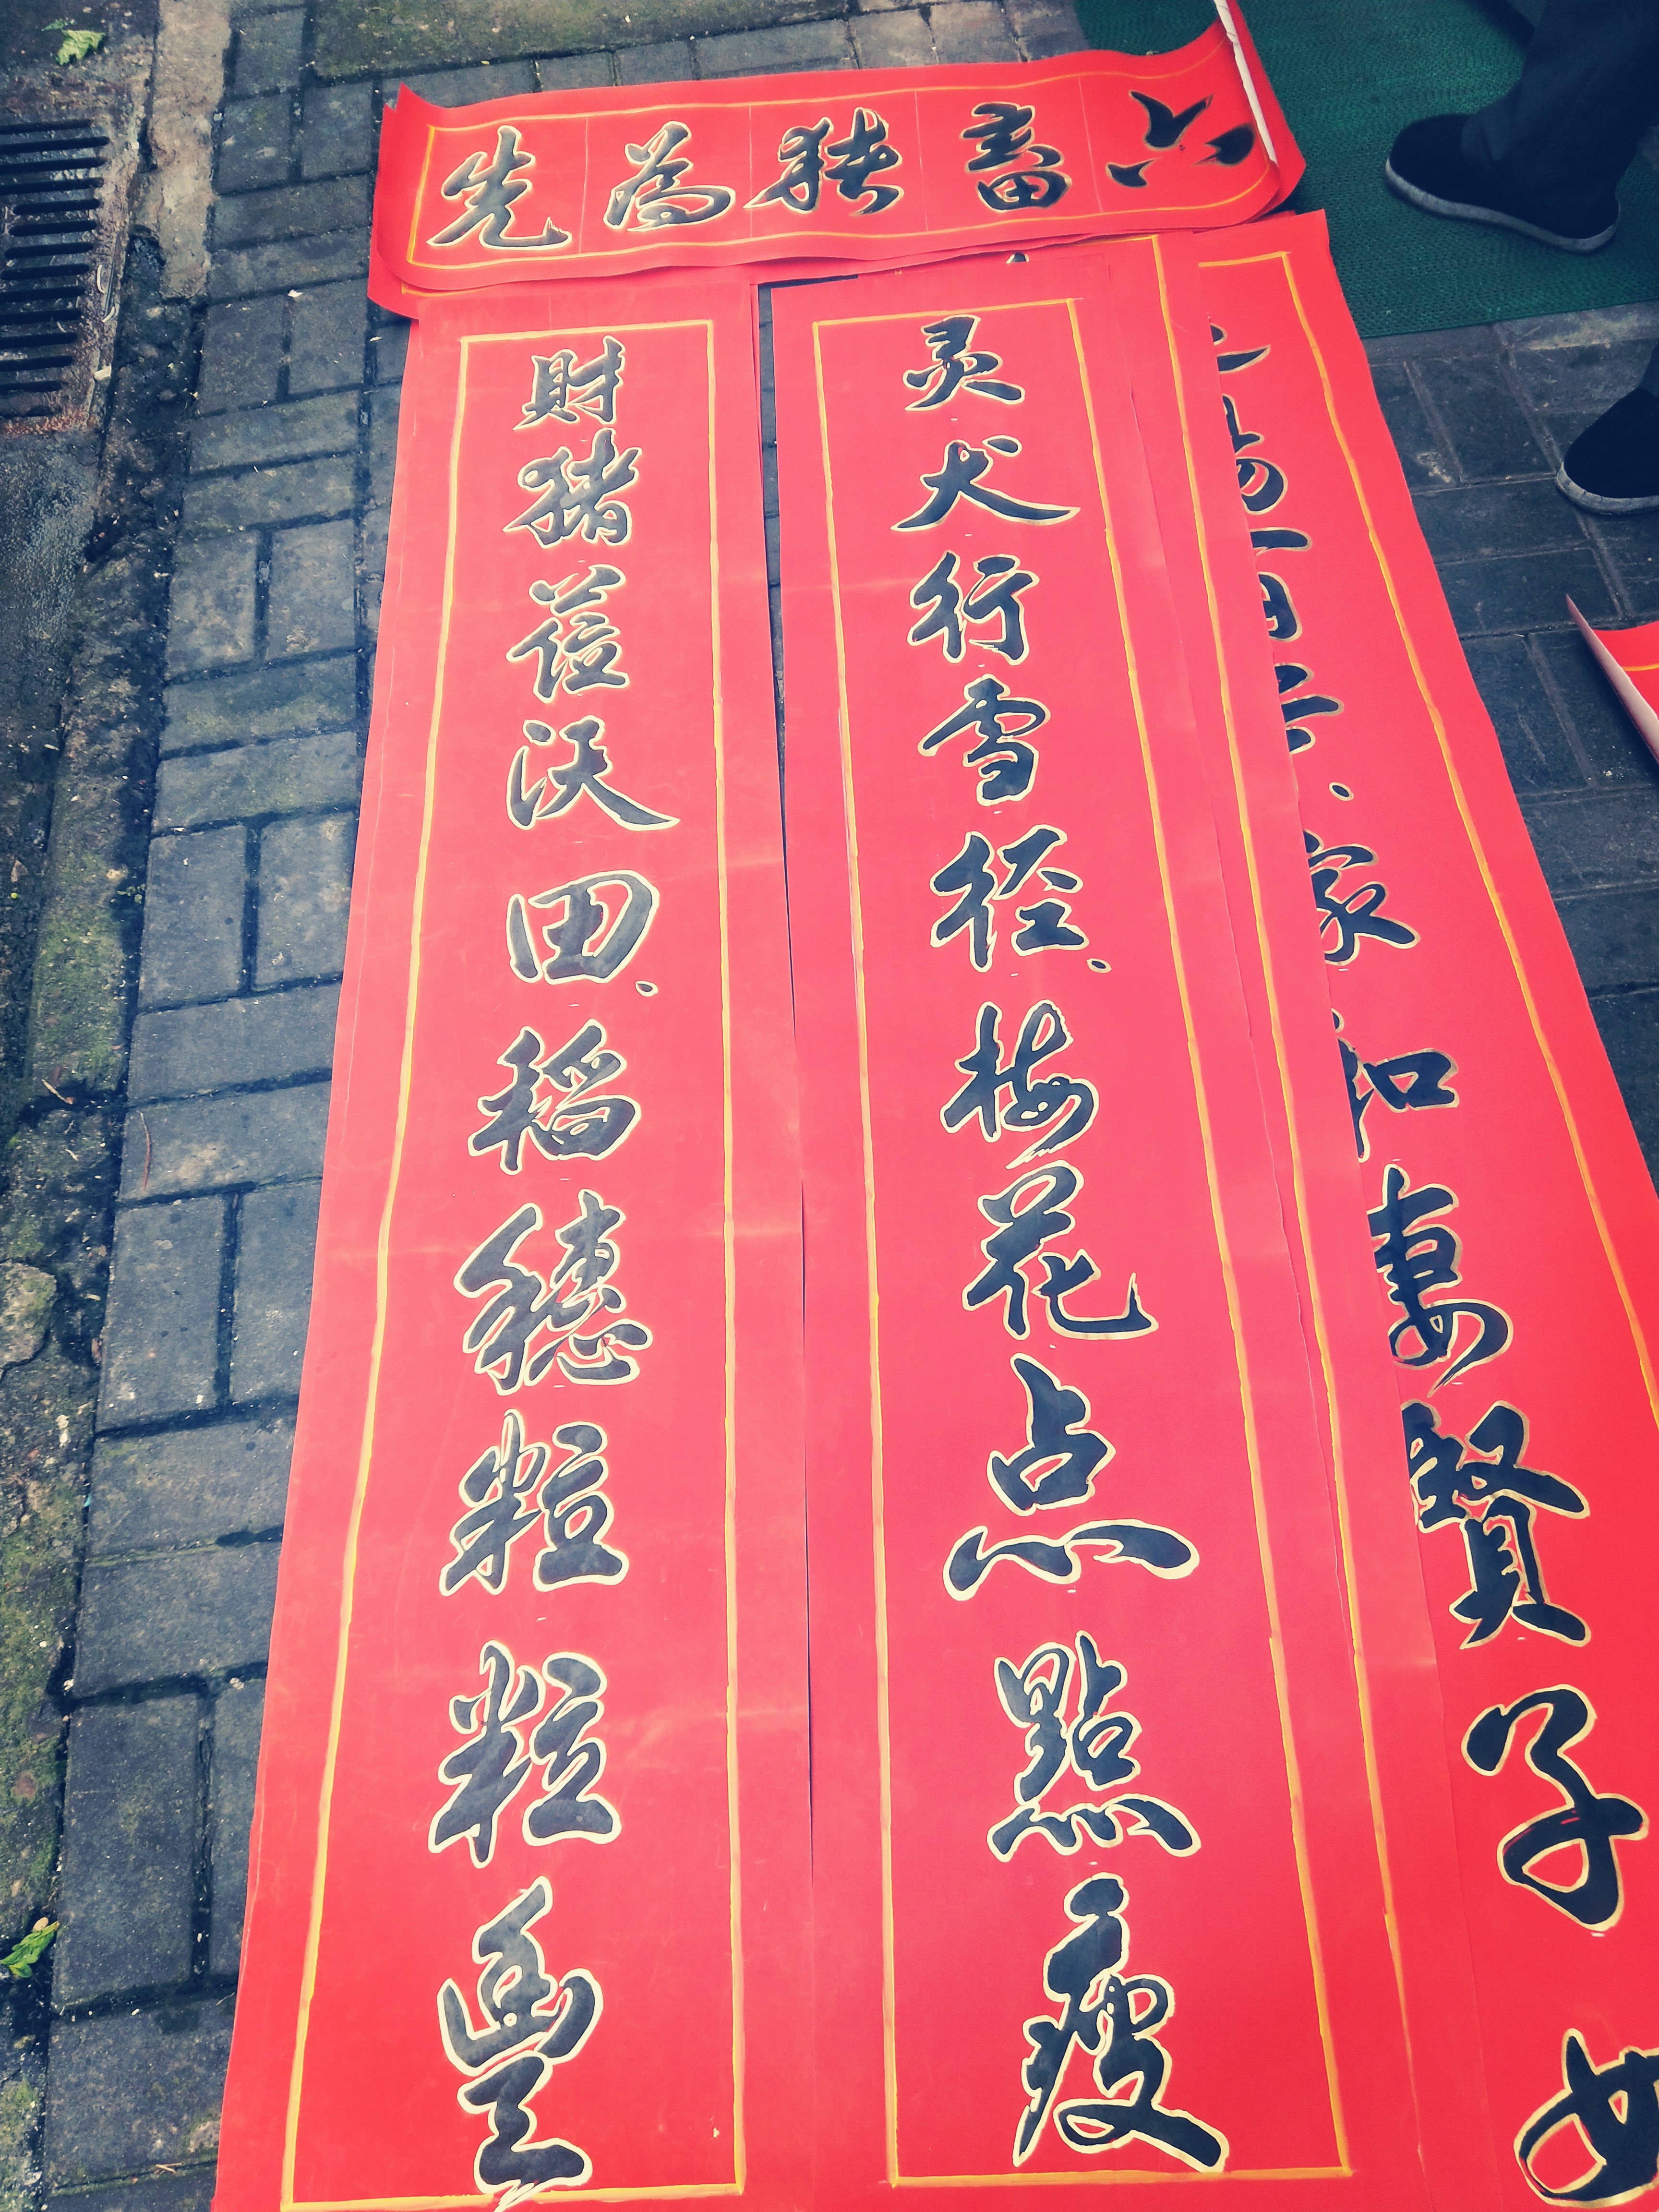 六畜猪為先
家和妻賢子
灵犬行雪径、梅花点點瘦
財猪蓓沃田、稻穗粒粒豐